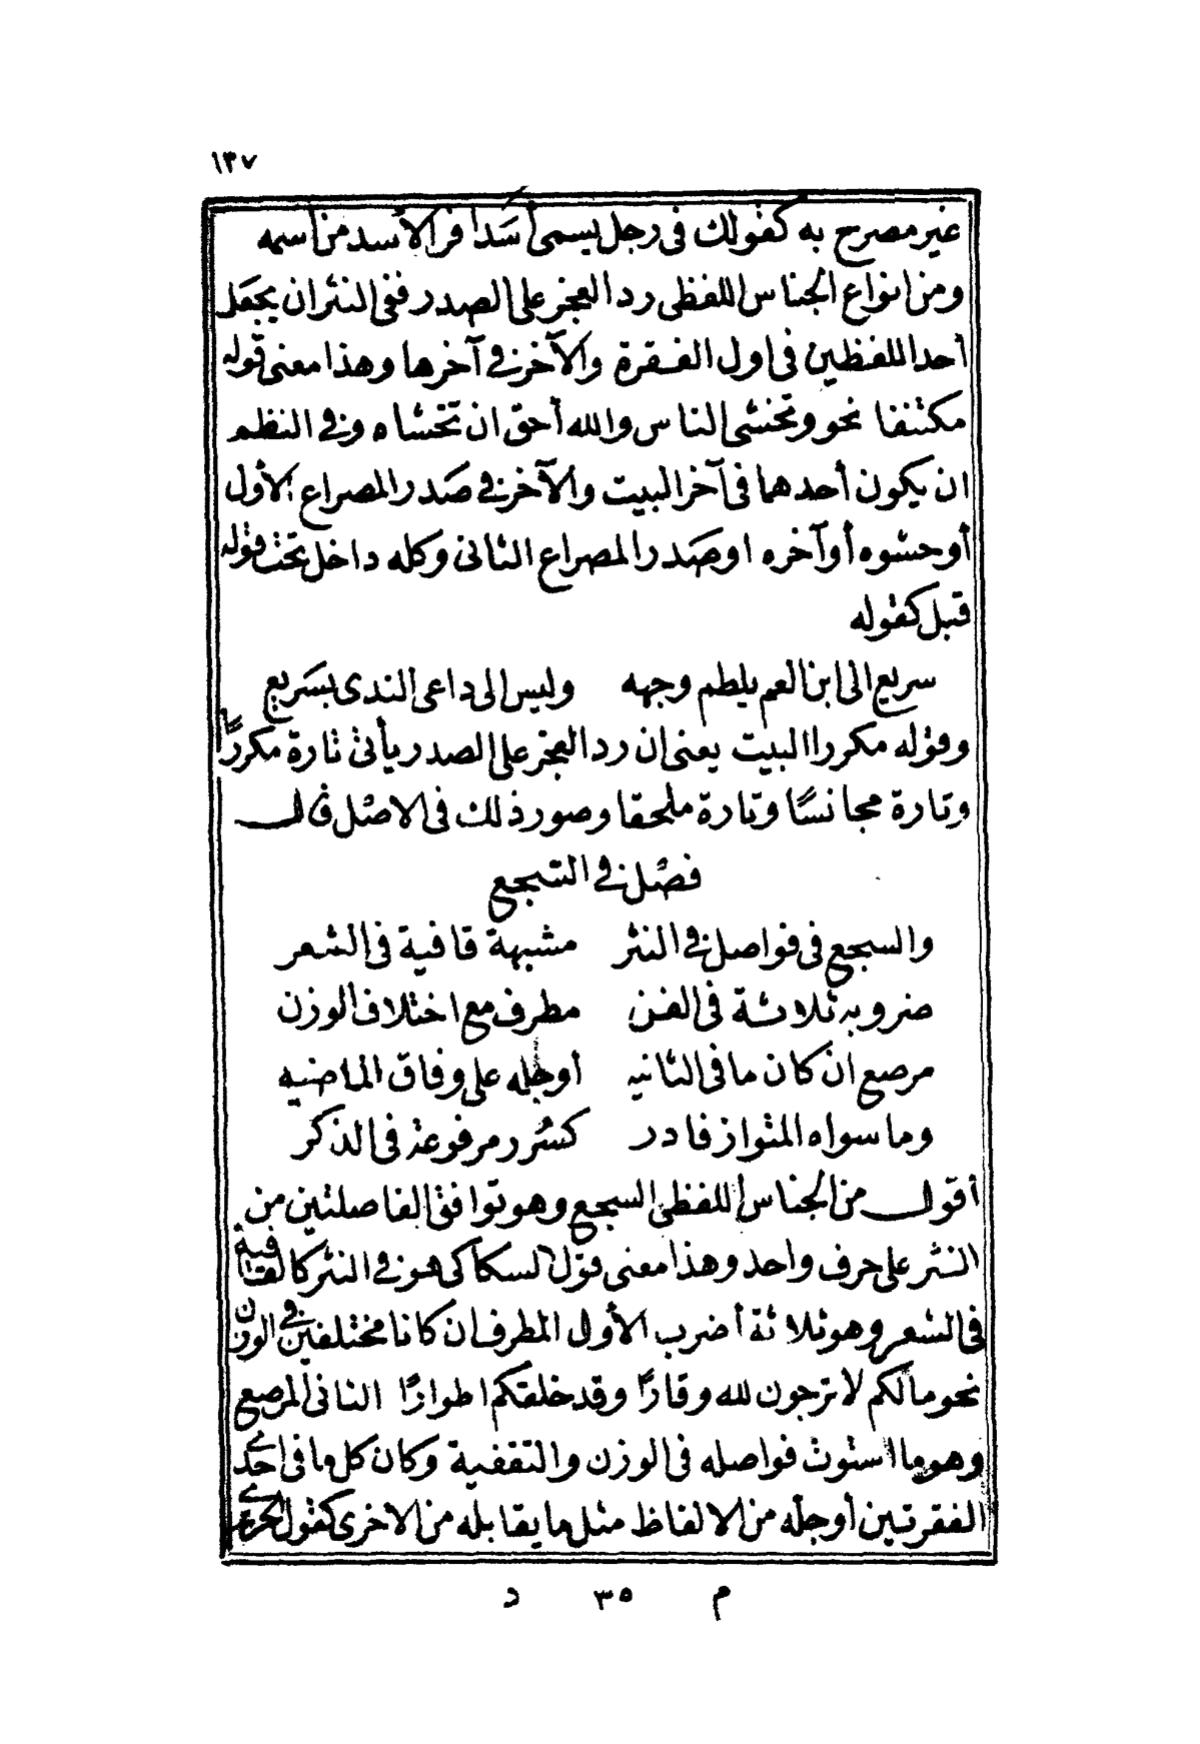 ١٣٧
غير مصرح به كقولك فى رجل يسمى أسَدا فر الأسد من اسمه
ومن انواع الجناس اللفظى رد العجز على الصدر ففى النثر ان يجعل
أحد اللفظين فى اول الفقرة والآخر فى آخرها وهذا معنى قوله
مكتنفا نحو وتخشى الناس والله أحق ان تخشاه وفى النظم
ان يكون أحدهما فى آخر البيت والآخر فى صَدر المصراع الأول
أو حشوه أو آخره او صَدر المصراع الثانى وكله داخل تحت قوله
قبل كقوله
سريع الى ابن العم يلطم وجهه وليس الى داعى الندى بسَريع
وقوله مكررا البيت يعنى ان رد العجز على الصدر يأتى تارة مكررًا
وتارة مجانسًا وتارة ملحقا وصور ذلك فى الاصْل قال
فصْل فى السجع
والسجع فى فواصل فى النثر مشبهة قافية فى الشعر
ضروبه ثلاثة فى الفن مطرف مع اختلاف الوزن
مرصع ان كان ما فى الثانيه أوجله على وفاق الماضيه
وما سواه المتواز فادر كسُرر مرفوعة فى الذكر
أقول من الجناس اللفظى السجع وهو توافق الفاصلتين من
النثر على حرف واحد وهذا معنى قول السكاكى هو فى النثر كالقافية
فى الشعر وهو ثلاثة أضرب الأول المطرف ان كانا مختلفين فى الوزن
نحو مالكم لا ترجون لله وقارًا وقد خلقكم اطوارًا الثانى المرصع
وهو ما استوت فواصله فى الوزن والتقفية وكان كل ما فى احَدى
الفقرتين أوجله من الالفاظ مثل ما يقابله من الاخرى كقول الحريرى
م ٣٥ د